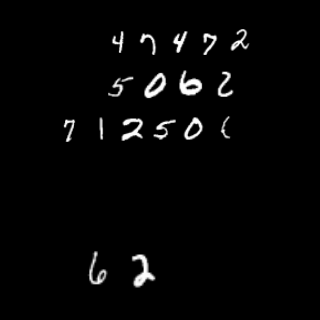 47472
5062
712506
62